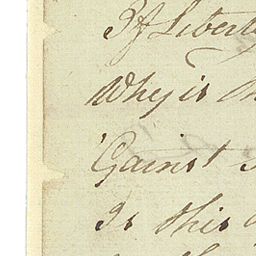 If Liberty
Why is
'Gainst
Is this